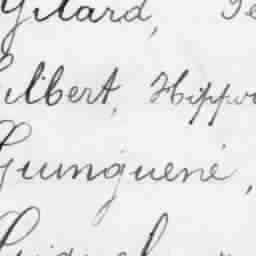 Gilard,
Gilbert, Hippo
Guinguené,